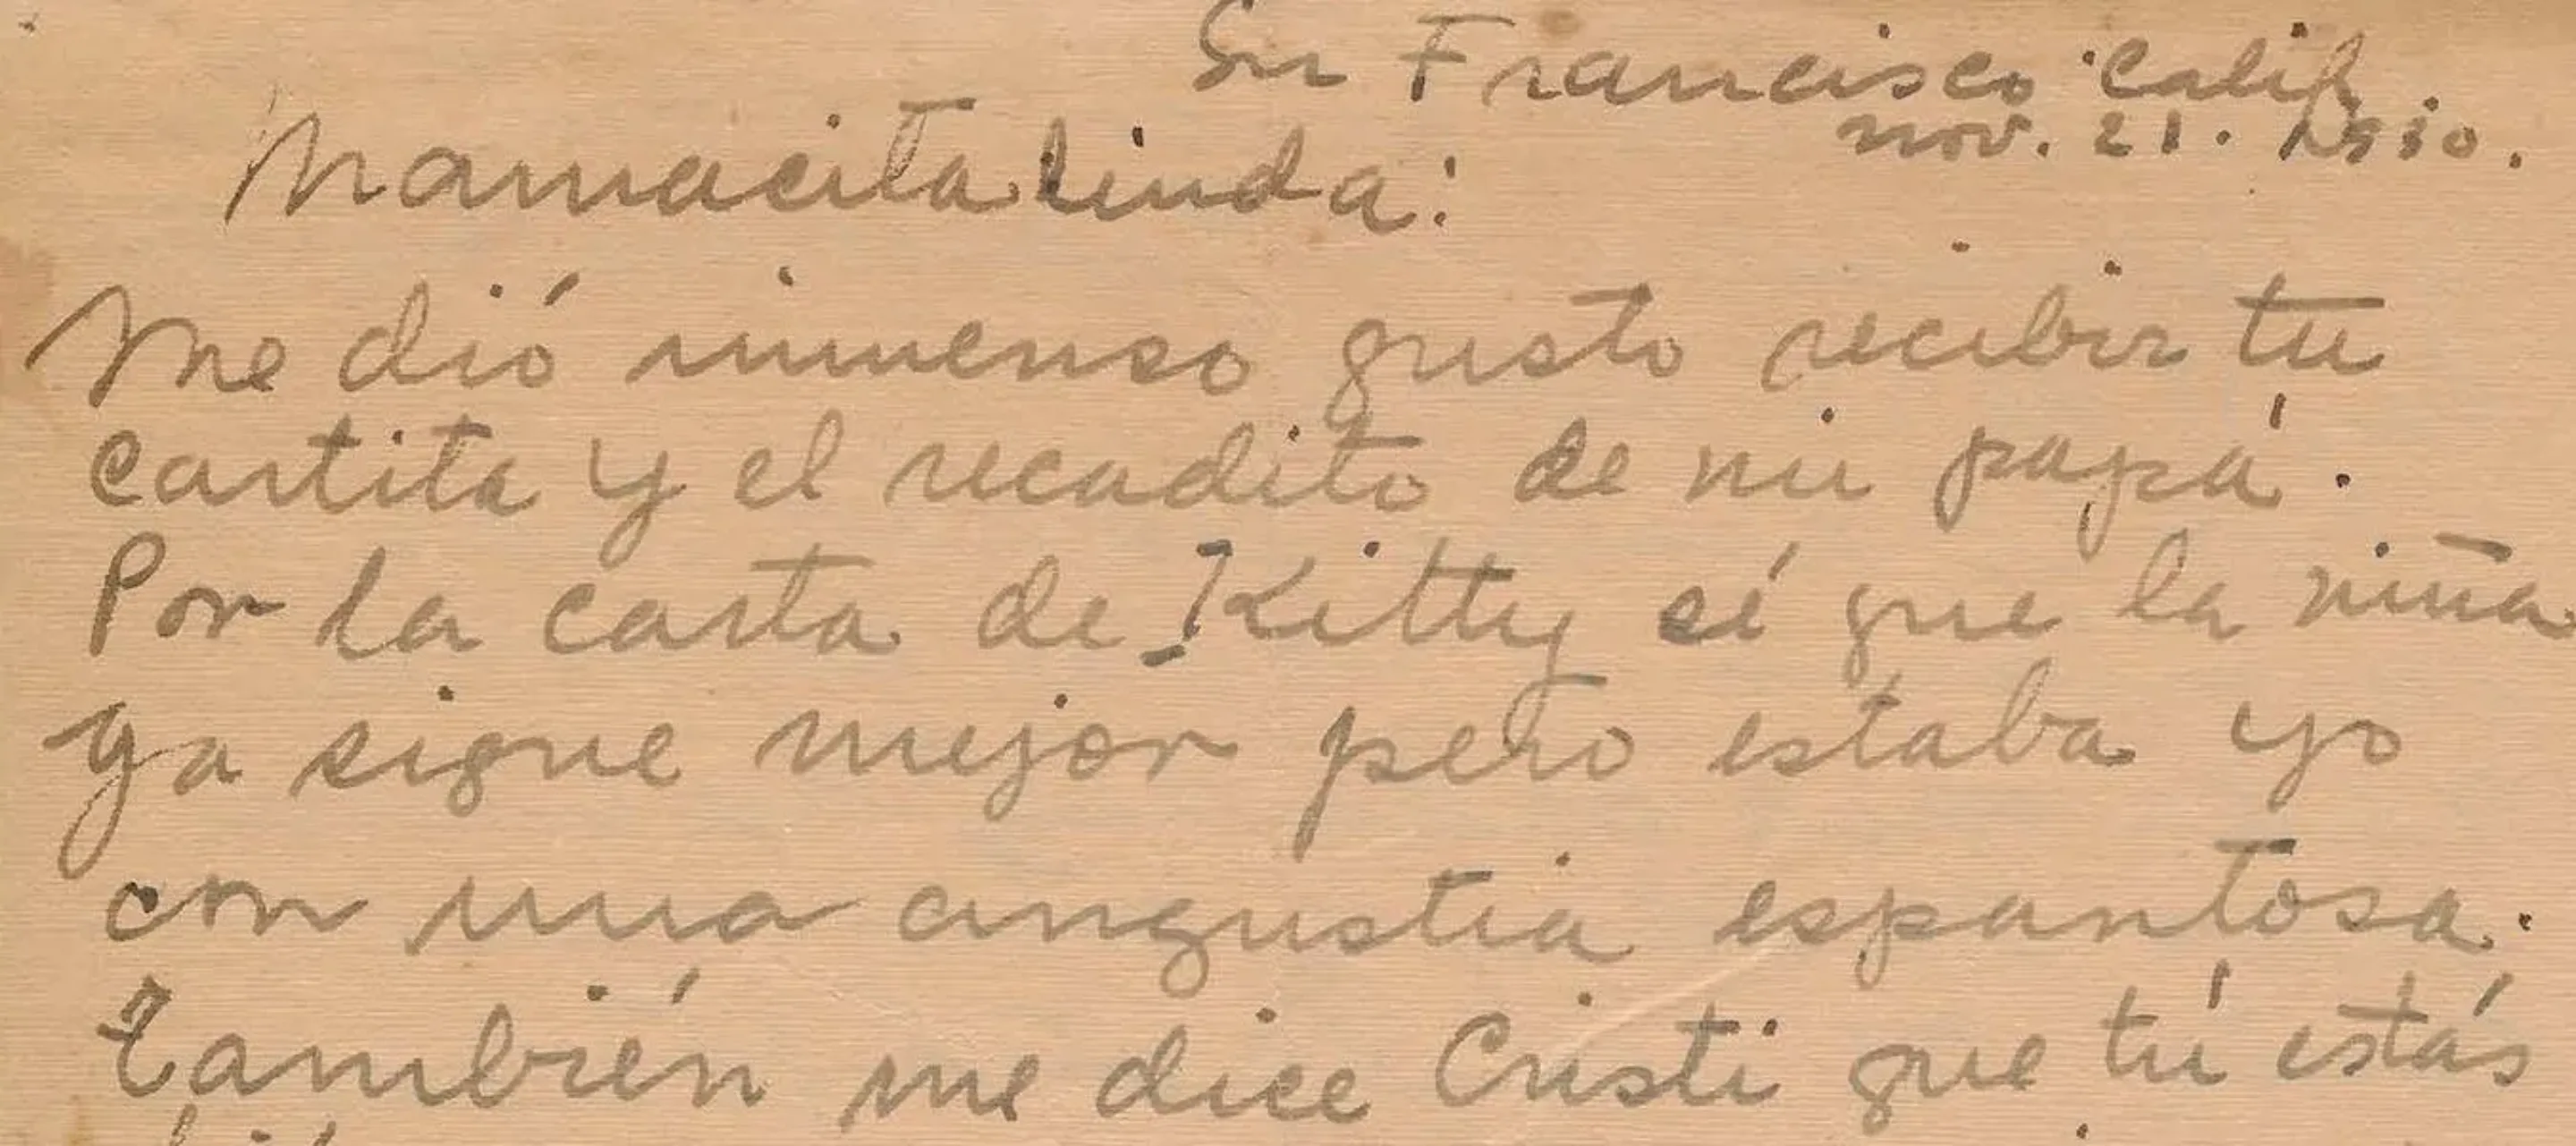 Sn Francisco Calif.
nov. 21. 1930.
Mamacita linda:
Me dió inmenso gusto recibir tu
cartita y el recadito de mi papá.
Por la carta de Kitty sé que la niña
ya sigue mejor pero estaba yo
con una angustia espantosa.
También me dice Cristi que tú estás